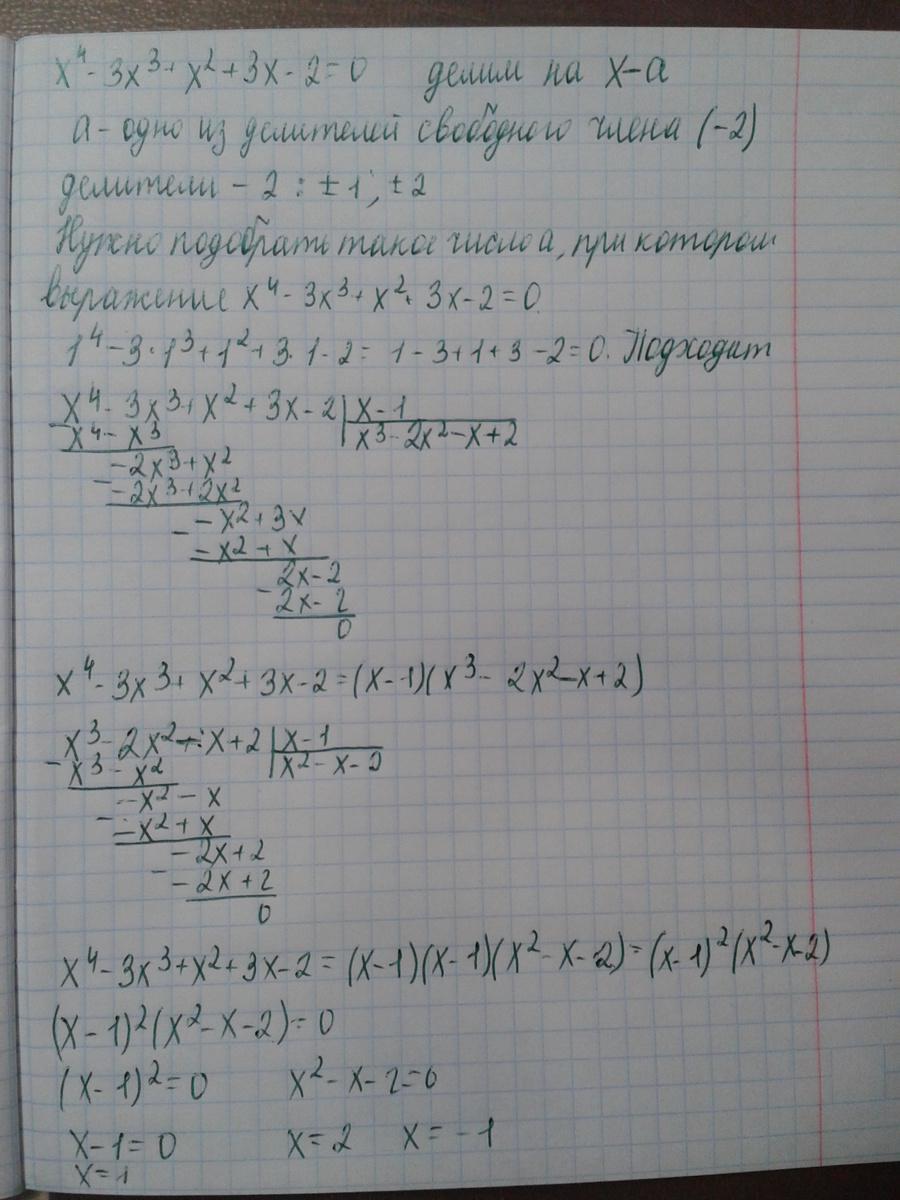 x⁴ - 3x³ + x² + 3x - 2 = 0 делим на x-a
a - одно из делителей свободного члена (-2)
делители - 2 : ± 1 , ± 2
Нужно подобрать такое число a, при котором
выражение x⁴ - 3x³ + x² + 3x - 2 = 0.
1⁴ - 3·1³ + 1² + 3·1 - 2 = 1 - 3 + 1 + 3 - 2 = 0. Подходит
x⁴ - 3x³ + x² + 3x - 2 | x - 1
- x⁴ - x³ | x³ - 2x² - x + 2
-2x³ + x²
- -2x³ + 2x²
- x² + 3x
- - x² + x
2x - 2
- 2x - 2
0
x⁴ - 3x³ + x² + 3x - 2 = (x-1)(x³ - 2x² - x + 2)
x³ - 2x² - x + 2 | x - 1
- x³ - x² | x² - x - 2
-x² - x
- -x² + x
- 2x + 2
- - 2x + 2
0
x⁴ - 3x³ + x² + 3x - 2 = (x-1)(x-1)(x² - x - 2) = (x-1)²(x² - x - 2)
(x - 1)²(x² - x - 2) = 0
(x - 1)² = 0 x² - x - 2 = 0
x - 1 = 0 x = 2 x = -1
x = 1